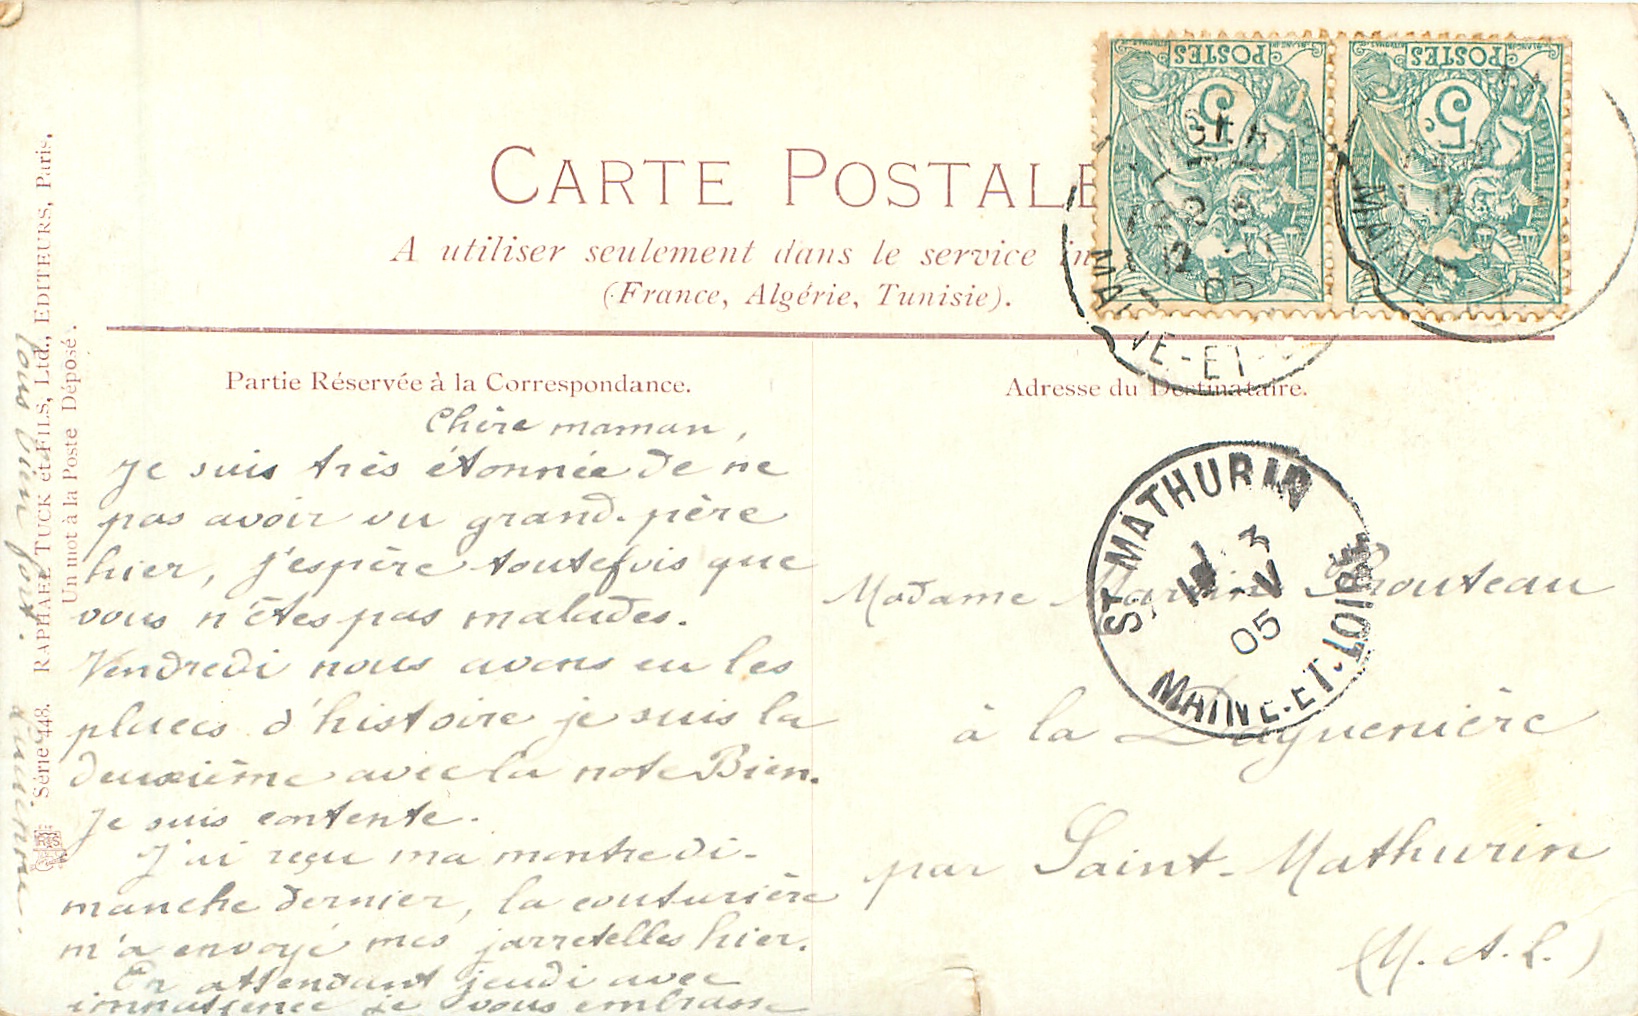 CARTE POSTALE
A utiliser seulement dans le service in
(France, Algérie, Tunisie).
POSTES
5c
POSTES
5c
MAINE-ET-
05
MAINE
Partie Réservée à la Correspondance.
Chère maman,
Je suis très étonnée de ne
pas avoir vu grand-père
hier, j'espère toutefois que
vous n'êtes pas malades.
Vendredi nous avons eu les
places d'histoire je suis la
deuxième avec la note Bien.
Je suis contente.
J'ai reçu ma montre di-
manche dernier, la couturière
m'a envoyé mes jarretelles hier.
En attendant jeudi avec
je vous embrasse
tous bien fort.
Adresse du Destinataire.
ST MATHURIN
3
05
MAINE-ET-LOIRE
Madame Martin Prouteau
à la Daguenière
par Saint-Mathurin
(M. A. L.)
Série 448. RAPHAEL TUCK et FILS, Ltd., EDITEURS, Paris.
Un mot à la Poste Déposé.